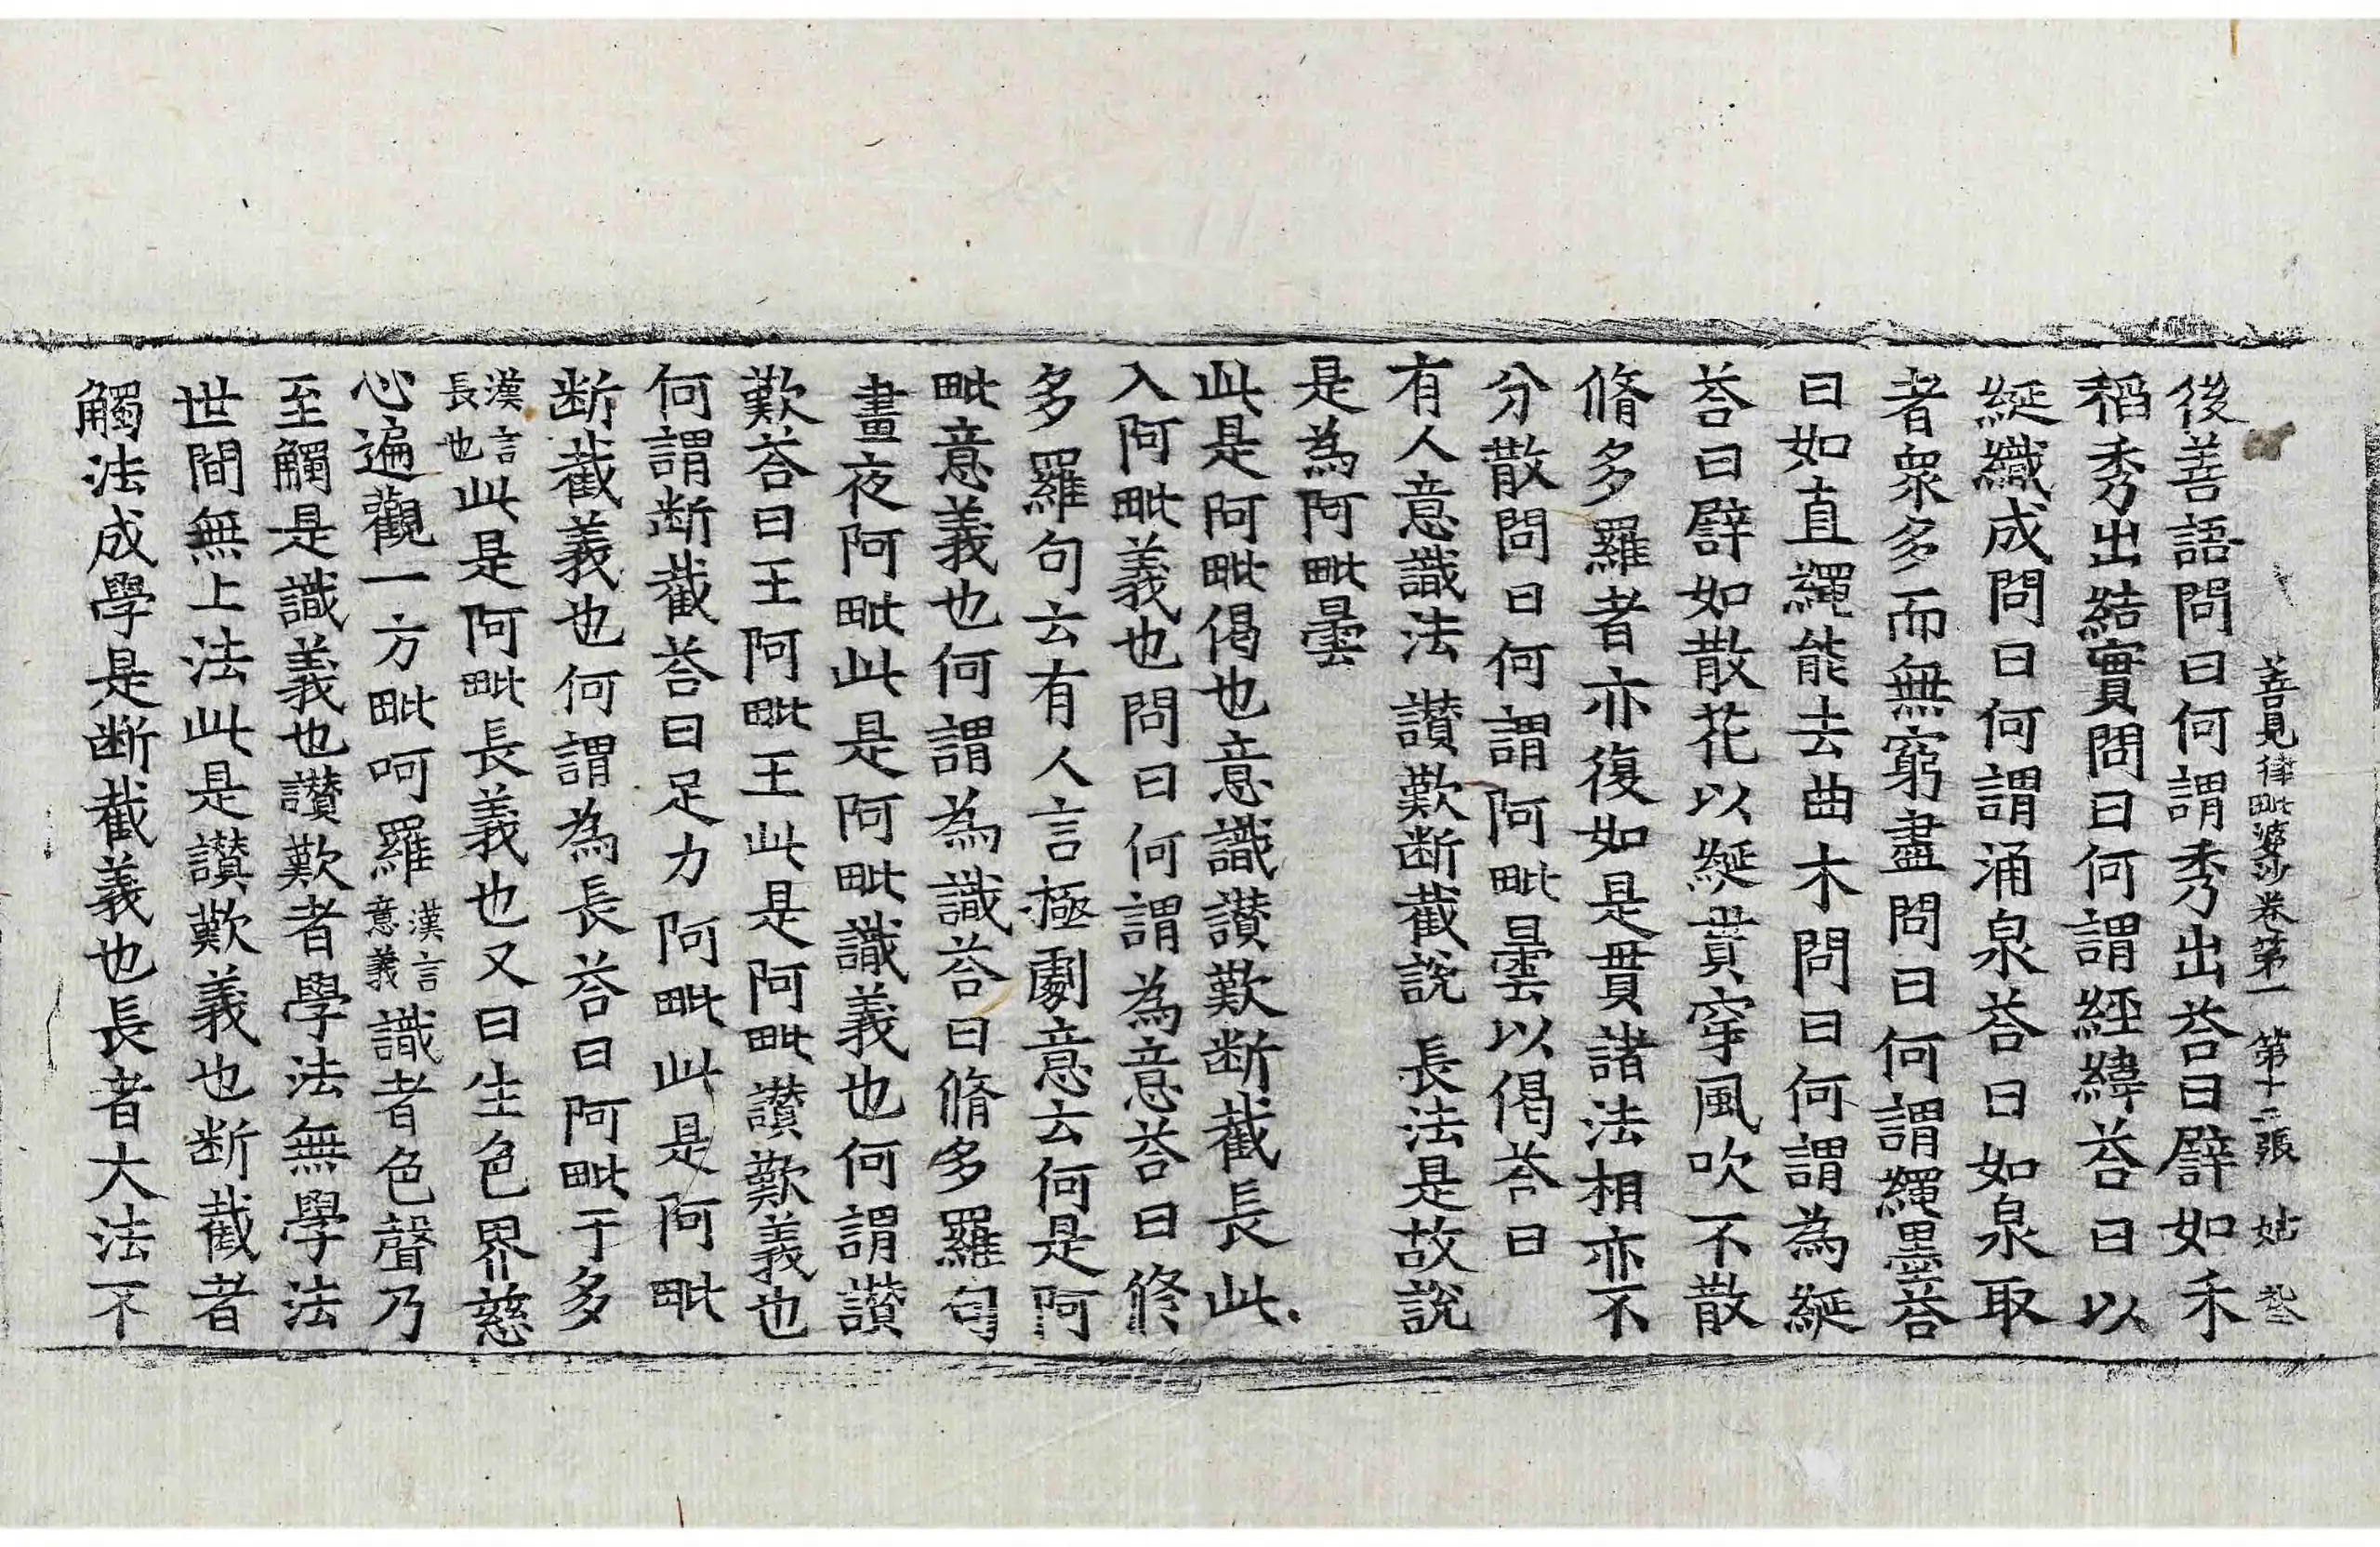 善見律毗婆沙卷第一 第十二張 姑
後善語問曰何謂秀出荅曰譬如禾
稻秀出結實問曰何謂經緯荅曰以
綖織成問曰何謂涌泉荅曰如泉取
者衆多而無窮盡問曰何謂繩墨荅
曰如直繩能去曲木問曰何謂為綖
荅曰譬如散花以綖貫穿風吹不散
脩多羅者亦復如是貫諸法相亦不
分散問曰何謂阿毗曇以偈荅曰
有人意識法 讃歎断截說 長法是故說
是為阿毗曇
此是阿毗偈也意識讃歎断截長此
入阿毗義也問曰何謂為意荅曰修
多羅句云有人言極劇意云何是阿
毗意義也何謂為識荅曰脩多羅句
晝夜阿毗此是阿毗識義也何謂讃
歎荅曰王阿毗王此是阿毗讃歎義也
何謂断截荅曰足力阿毗此是阿毗
断截義也何謂為長荅曰阿毗于多
漢言長也此是阿毗長義也又曰生色界慈
心遍觀一方毗呵羅漢言意義識者色聲乃
至觸是識義也讃歎者學法無學法
世間無上法此是讃歎義也断截者
觸法成學是断截義也長者大法不